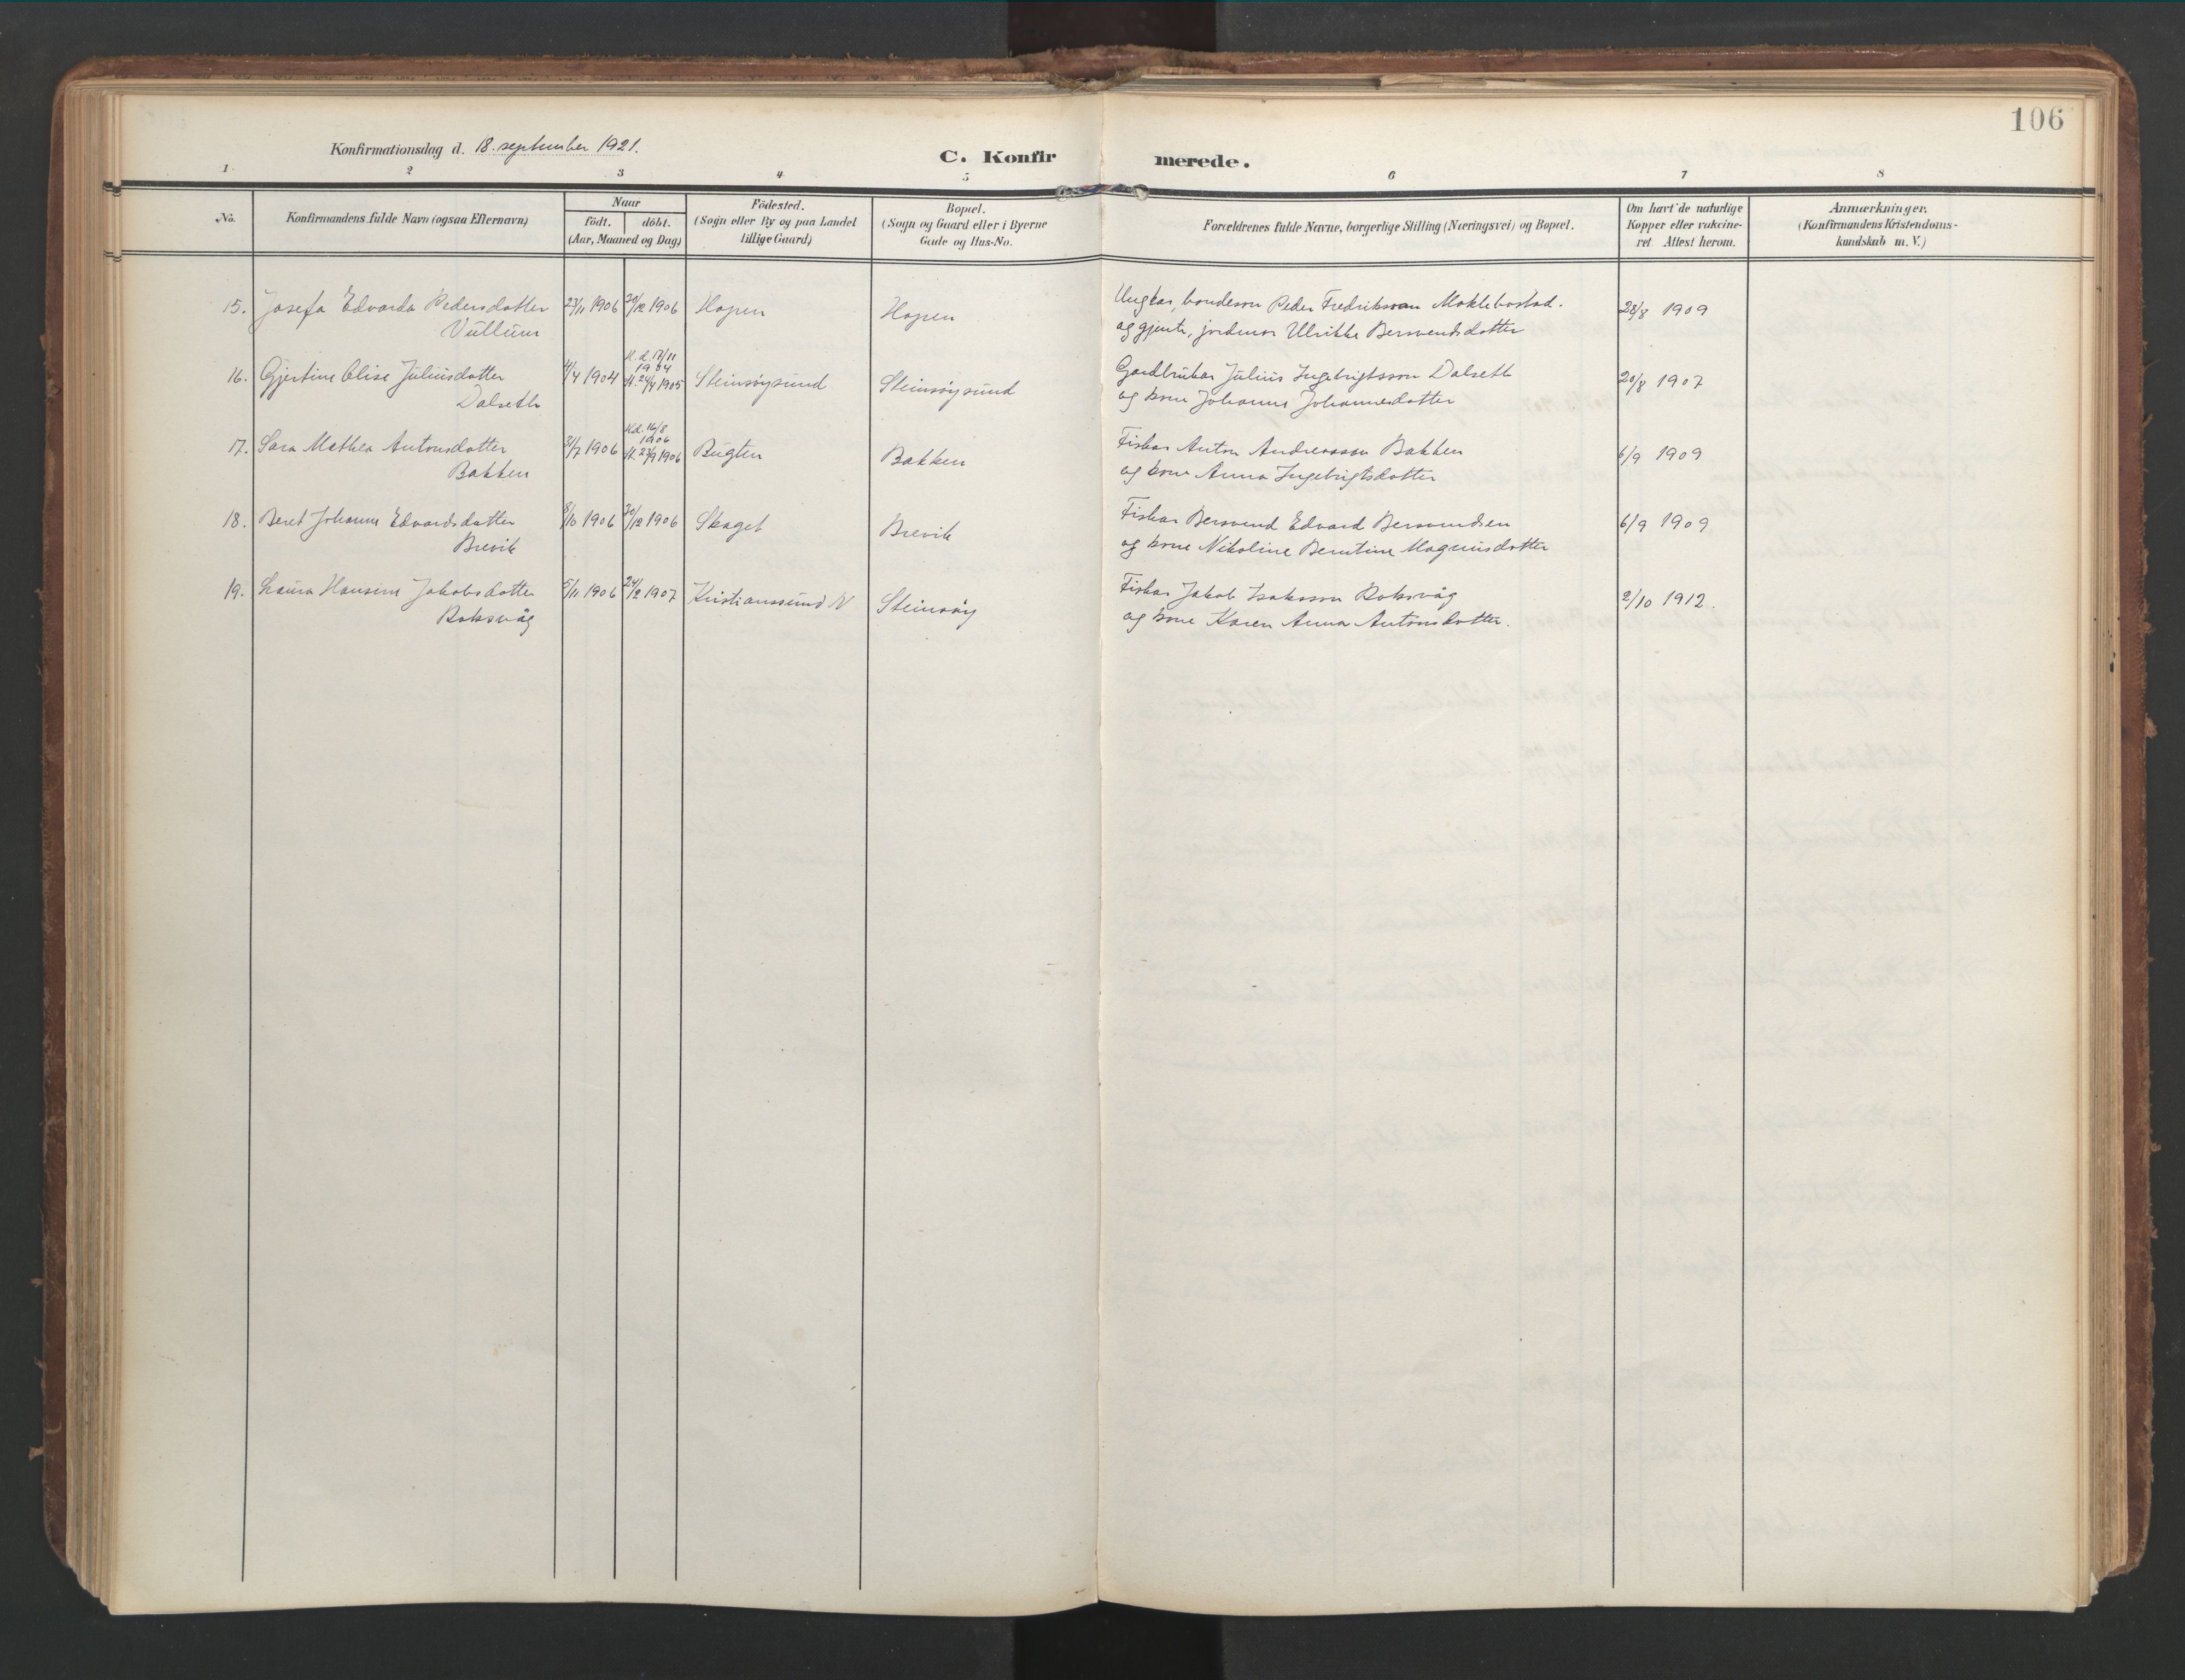 106
Konfirmationsdag d. 18. september 1921.
C. Konfirmerede.
1 2 3 4 5 6 7 8
No.
Konfirmandens fulde Navn (ogsaa Efternavn)
Naar
födt. döbt.
(Aar, Maaned og Dag)
Födested.
(Sogn eller By og paa Landet
tillige Gaard)
Bopæl.
(Sogn og Gaard eller i Byerne
Gade og Hus-No.
Forældrenes fulde Navne, borgerlige Stilling (Næringsvei) og Bopæl.
Om havt de naturlige
Kopper eller vakcine-
ret. Attest herom.
Anmærkninger,
(Konfirmandens Kristendoms-
kundskab m. V.)
15. Josefa Edvarda Pedersdotter 23/11 1906 30/12 1906 Hopen Hopen Ungkar, bondeson Peder Fredriksson Moklebostad. 28/8 1909
Vullum og gjente, jordmor Ulrikke Bersvendsdotter
16. Gjertine Elise Juliusdotter 4/4 1904 H. d. 17/11 1904 St. 24/4 1905 Steinsøysund Steinsøysund Gardbrukar Julius Ingebrigtsson Dalseth 20/8 1907
Dalseth og kone Johanna Johannesdotter
17. Sara Mathea Antonsdotter 31/7 1906 Hd. 16/8 1906 St. 23/9 1906 Bugten Bakken Fiskar Anton Andreasson Bakken 6/9 1909
Bakken og kone Anna Ingebrigtsdotter
18. Beret Johanna Edvardsdotter 8/10 1906 30/12 1906 Skaget Brevik Fiskar Bersvend Edvard Bersvendsen 6/9 1909
Brevik og kone Nikoline Berntine Magnusdotter
19. Laura Hansine Jakobsdotter 5/11 1906 24/2 1907 Kristianssund N Steinsøy Fiskar Jakob Isaksson Boksvåg 2/10 1912.
Boksvåg og kone Karen Anna Antonsdotter.